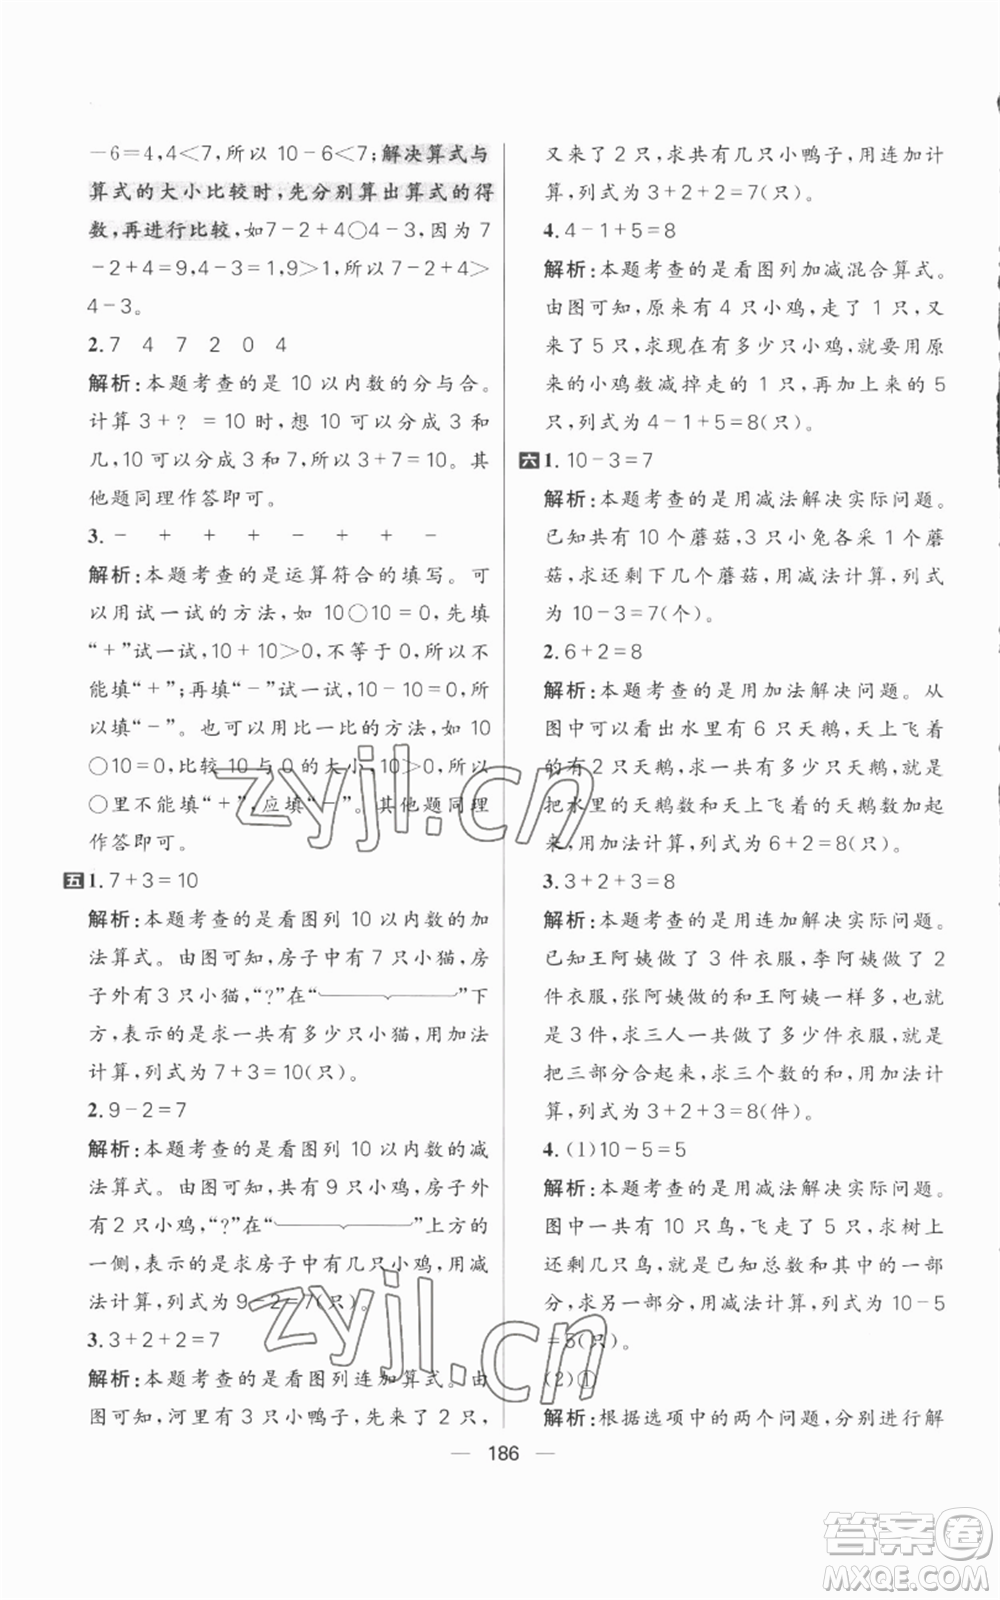 －6＝4,4＜7,所以 10－6＜7;解决算式与
算式的大小比较时,先分别算出算式的得
数,再进行比较,如7－2＋4○4－3,因为 7
－2＋4＝9,4－3＝1,9＞1,所以 7－2＋4＞
4－3。
2.7 4 7 2 0 4
解析:本题考查的是 10 以内数的分与合。
计算 3＋? ＝10 时,想 10 可以分成 3 和
几,10 可以分成 3 和 7,所以 3＋7＝10。其
他题同理作答即可。
3.－ ＋ ＋ － ＋ －
解析:本题考查的是运算符合的填写。可
以用试一试的方法,如 10○10＝0,先填
“＋”试一试,10＋10＞0,不等于 0,所以不
能填“＋”;再填“－”试一试,10－10＝0,所
以填“－”。也可以用比一比的方法,如 10
○10＝0,比较 10 与 0 的大小,10＞0,所以
○里不能填“＋”,应填“－”。其他题同理
作答即可。
五 1.7＋3＝10
解析:本题考查的是看图列 10 以内数的加
法算式。由图可知,房子中有 7 只小猫,房
子外有 3 只小猫,“?”在“ ”下
方,表示的是求一共有多少只小猫,用加法
计算,列式为 7＋3＝10(只)。
2.9－2＝7
解析:本题考查的是看图列 10 以内数的减
法算式。由图可知,共有 9 只小鸡,房子外
有 2 只小鸡,“?”在“ ”上方的
一侧,表示的是求房子中有几只小鸡,用减
法计算,列式为 9－2＝7(只)。
3.3＋2＋2＝7
解析:本题考查的是看图列连加算式。由
图可知,河里有 3 只小鸭子,先来了 2 只,
又来了 2 只,求共有几只小鸭子,用连加计
算,列式为 3＋2＋2＝7(只)。
4.4－1＋5＝8
解析:本题考查的是看图列加减混合算式。
由图可知,原来有 4 只小鸡,走了 1 只,又
来了 5 只,求现在有多少只小鸡,就要用原
来的小鸡数减掉走的 1 只,再加上来的 5
只,列式为 4－1＋5＝8(只)。
六 1.10－3＝7
解析:本题考查的是用减法解决实际问题。
已知共有 10 个蘑菇,3 只小兔各采 1 个蘑
菇,求还剩下几个蘑菇,用减法计算,列式
为 10－3＝7(个)。
2.6＋2＝8
解析:本题考查的是用加法解决问题。从
图中可以看出水里有 6 只天鹅,天上飞着
的有 2 只天鹅,求一共有多少只天鹅,就是
把水里的天鹅数和天上飞着的天鹅数加起
来,用加法计算,列式为 6＋2＝8(只)。
3.3＋2＋3＝8
解析:本题考查的是用连加解决实际问题。
已知王阿姨做了 3 件衣服,李阿姨做了 2
件衣服,张阿姨做的和王阿姨一样多,也就
是 3 件,求三人一共做了多少件衣服,就是
把三部分合起来,求三个数的和,用加法计
算,列式为 3＋2＋3＝8(件)。
4.(1)10－5＝5
解析:本题考查的是用减法解决实际问题。
图中一共有 10 只鸟,飞走了 5 只,求树上
还剩几只鸟,就是已知总数和其中的一部
分,求另一部分,用减法计算,列式为 10－5
＝5(只)。
(2)①
解析:根据选项中的两个问题,分别进行解
— 186 —
zyjl.cn
zyjl.cn
答案圈
MXQE.COM